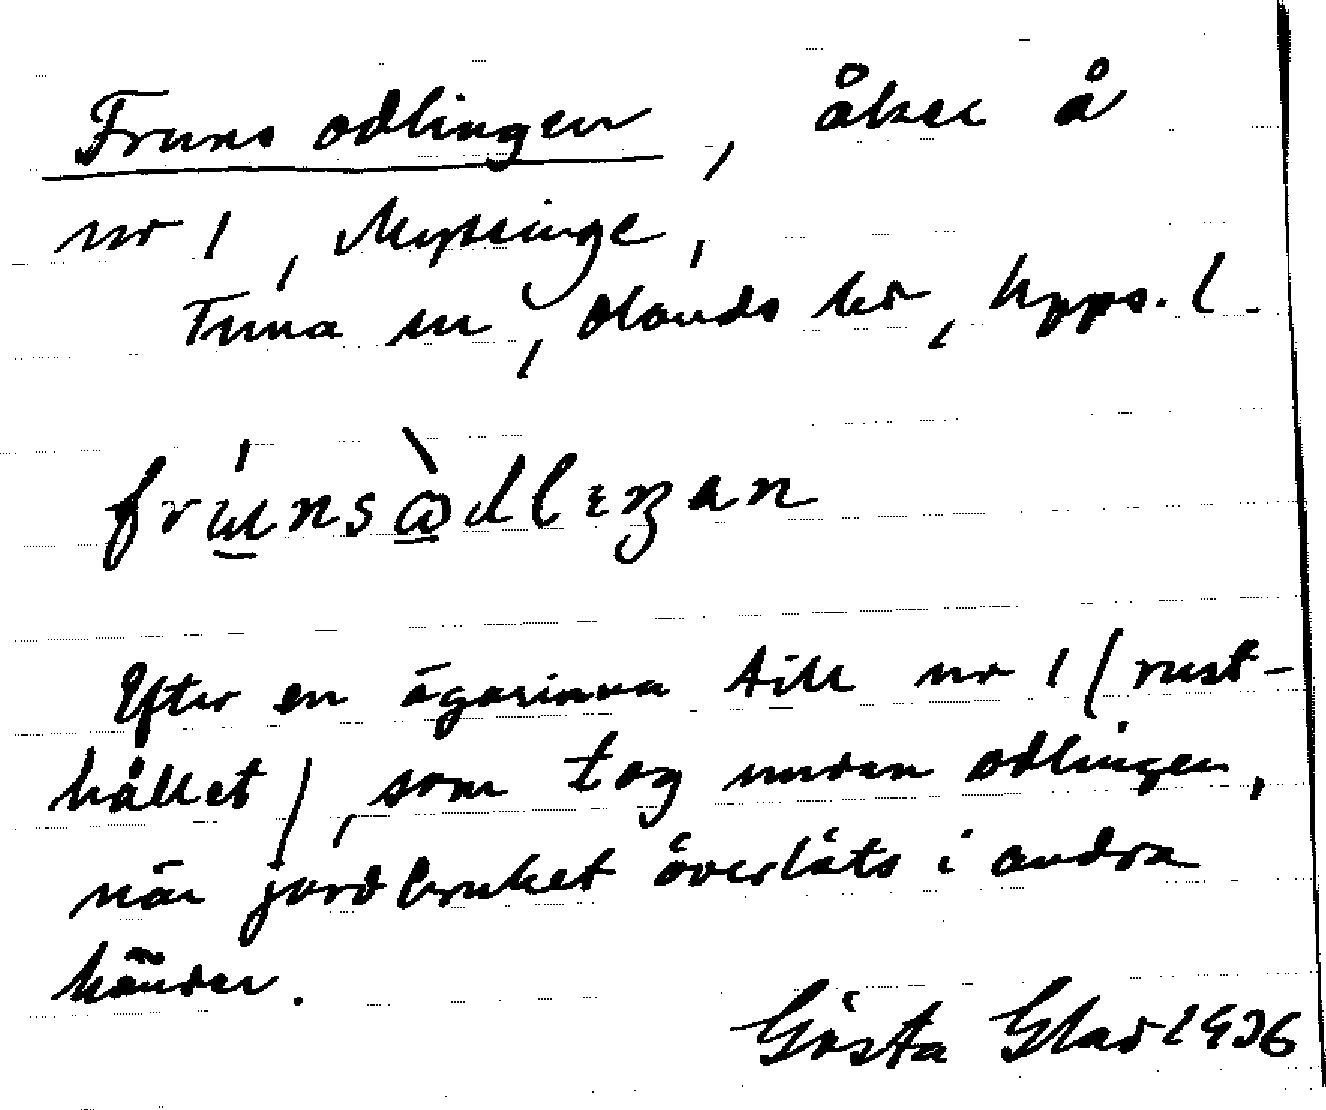 Fruns odlingen, åker å
nr 1, Myssinge,
Tuna sn, Olands hd, Upps. l.
frunsòdlɩŋan
Efter en ägarinna till nr 1 (rust-
hållet), som tog undan odlingen,
när jordbruket överläts i andra
händer.
Gösta Glad 1936